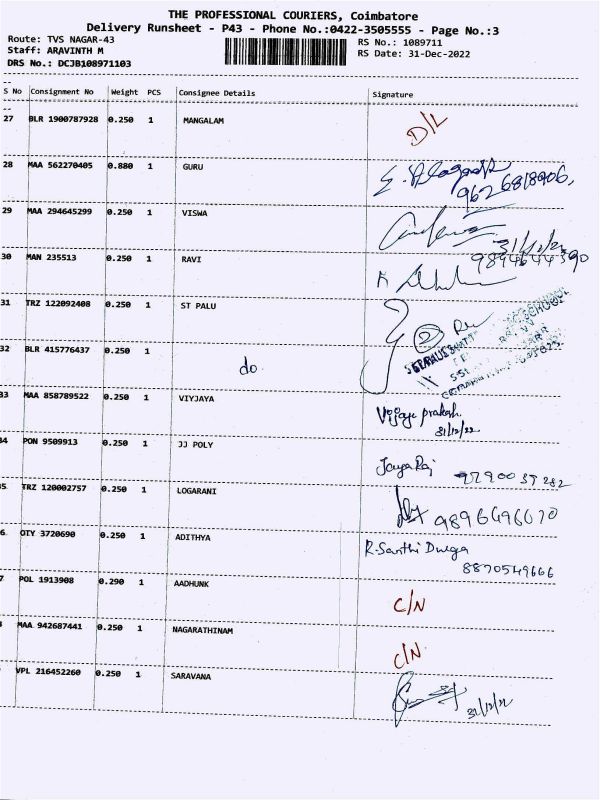 THE PROFESSIONAL COURIERS, Coimbatore
Delivery Runsheet - P43 - Phone No.:0422-3505555 - Page No.:3
Route: TVS NAGAR-43
Staff: ARAVINTH M
DRS No.: DCJB108971103
RS No.: 1089711
RS Date: 31-Dec-2022
S No Consignment No Weight PCS Consignee Details Signature
27 BLR 1900787928 0.250 1 MANGALAM D/L
28 MAA 562270405 0.880 1 GURU
9626818906.
29 MAA 294645299 0.250 1 VISWA
31/12/22
30 MAN 235513 0.250 1 RAVI 9894644390
31 TRZ 122092408 0.250 1 ST PALU
32 BLR 415776437 0.250 1 do
33 MAA 858789522 0.250 1 VIYJAYA Vijaya prakash
31/12/22
34 PON 9509913 0.250 1 JJ POLY Jaya Raj 9790037282
35 TRZ 120002757 0.250 1 LOGARANI 9896496070
6 OTY 3720690 0.250 1 ADITHYA R. Santhi Durga
8870549666
7 POL 1913908 0.290 1 AADHUNK C/N
MAA 942687441 0.250 1 NAGARATHINAM C/N
VPL 216452260 0.250 1 SARAVANA
31/12/22